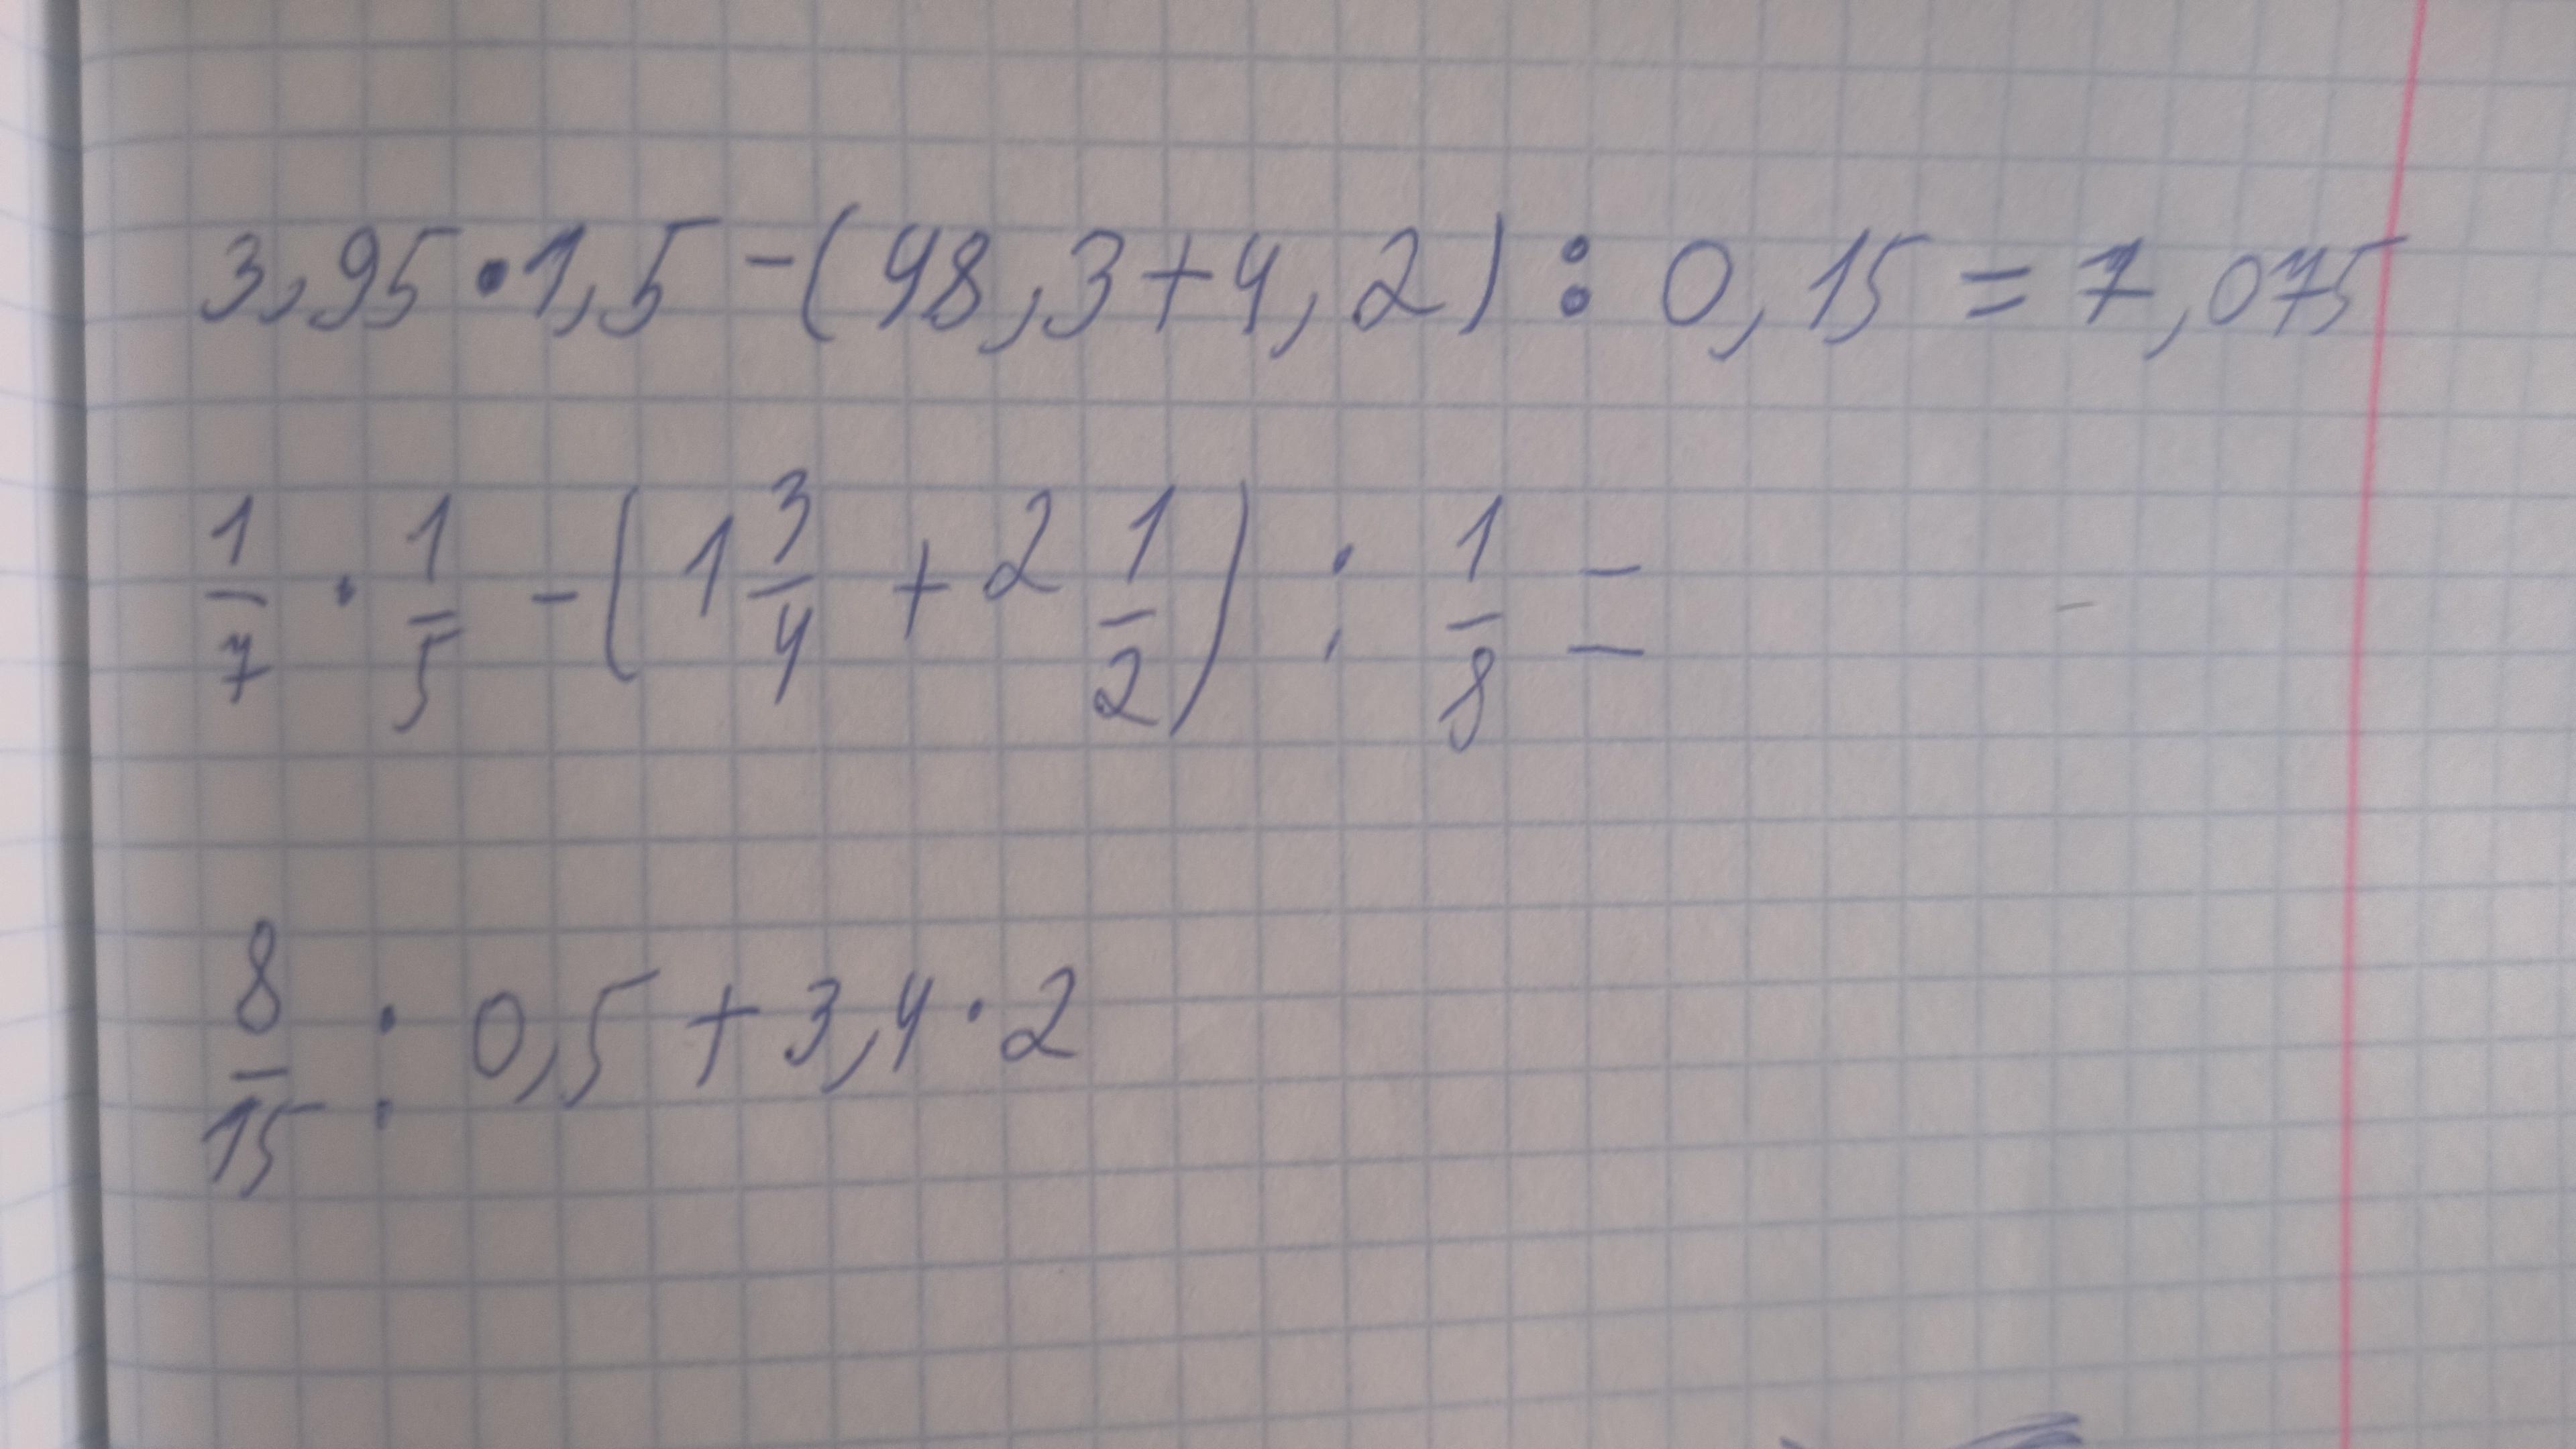 3,95 • 1,5 - (48,3 + 4,2) : 0,15 = 7,075
1/7 · 1/5 - (1 3/4 + 2 1/2) : 1/8 =
8/15 : 0,5 + 3,4 · 2